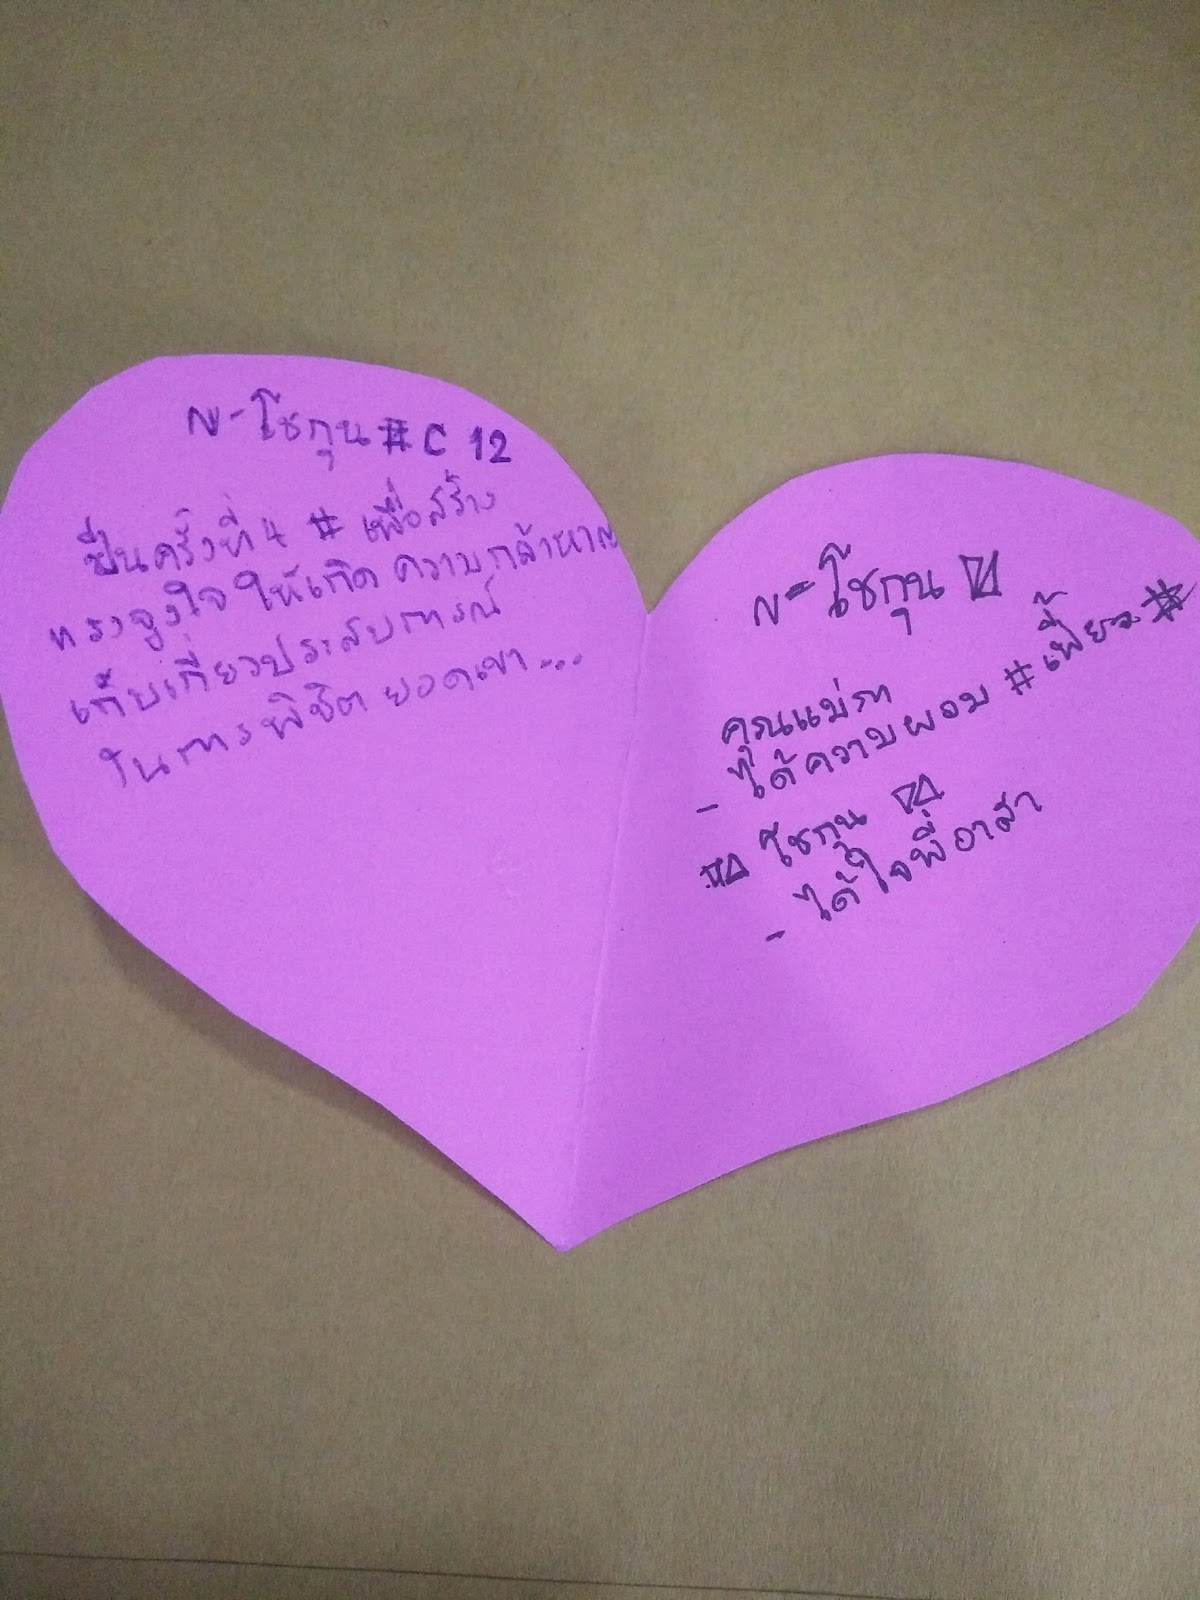 N-โชกุน # C 12
ปีนครั้งที่ 4 # เพื่อสร้าง
แรงจูงใจ ให้เกิด ความกล้าหาญ
เก็บเกี่ยวประสบการณ์
ในการพิชิต ยอดเขา...
N-โชกุน
คุณแม่
- ได้ความผอม # เฟี้ยว #
โชกุน
- ได้ใจพี่อาสา